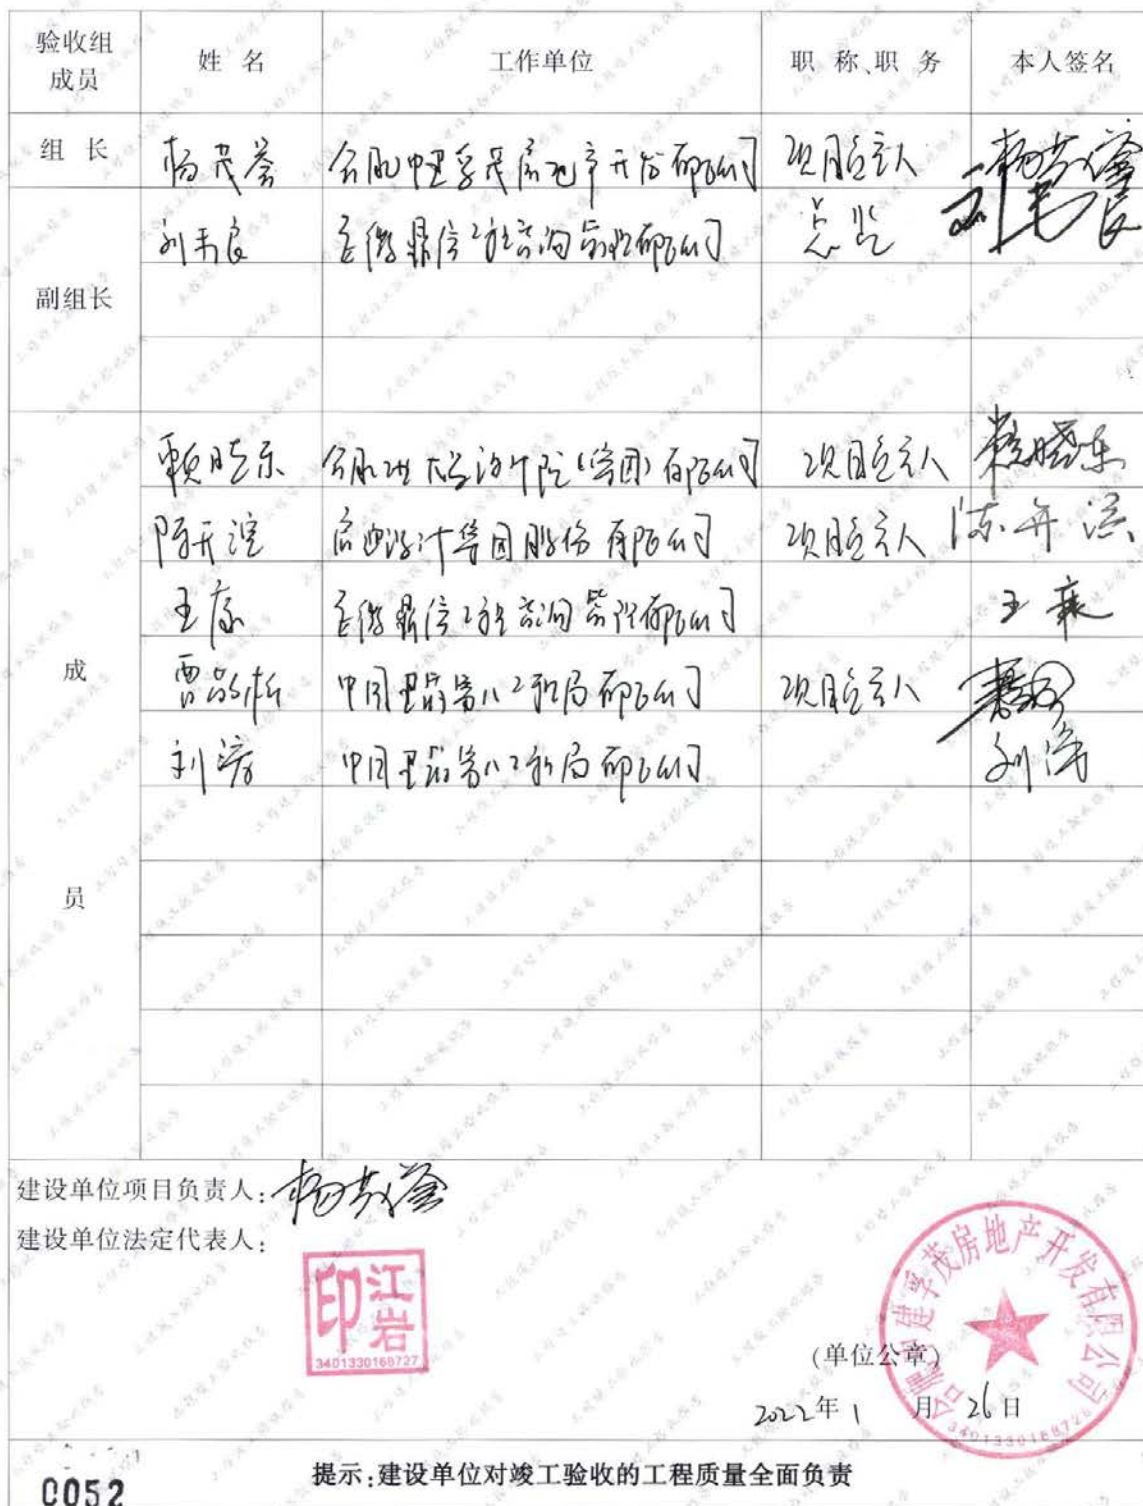 验收组成员 姓 名 工作单位 职 称、职 务 本人签名
组 长 杨茂荟 合肥中建孚茂房地产开发有限公司 项目负责人 杨茂荟
总监
副组长
赖晓东 合肥 大学设计院(集团)有限公司 项目负责人 赖晓东
陈开 启迪设计集团股份有限公司 项目负责人
王康 安徽鼎信工程咨询管理有限公司 王康
成 曹 中国建筑第八工程局有限公司 项目负责人
刘涛 中国建筑第八工程局有限公司 刘涛
员
建设单位项目负责人:杨茂荟
建设单位法定代表人:
江岩印
3401330168727
合肥中建孚茂房地产开发有限公司
3401330168726
(单位公章)
2022年1月26日
0052
提示:建设单位对竣工验收的工程质量全面负责